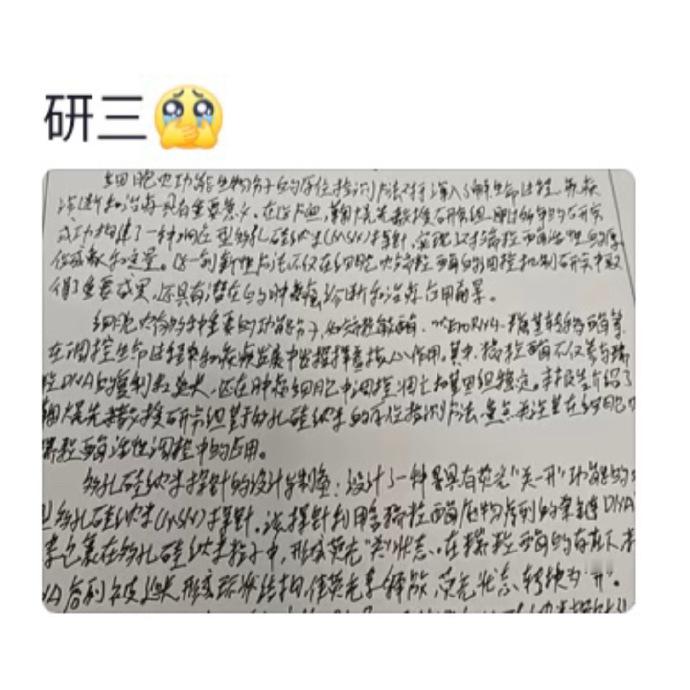 研三🥹
细胞内功能生物分子的原位检测方法对于深入了解生命过程、疾病
诊断和治疗具有重要意义。在这方面,鞠熀先教授研究组
成功构建了一种响应型多孔硅纳米(MSN)探针,实现了对端粒酶活性的原
位定量。这一创新性方法不仅在细胞内端粒酶的调控机制研究中取
得了重要成果,还具有潜在的肿瘤诊断和治疗应用前景。
细胞内存的种重要的功能分子,如端粒酶、
在调控生命过程和疾病发展中发挥着核心作用。其中,端粒酶不仅参与端
粒DNA的复制和延长,还在肿瘤细胞中调控凋亡和基因组稳定。本报告介绍了
鞠熀先教授研究组基于多孔硅纳米的原位检测方法,重点关注其在细胞内
端粒酶活性调控中的应用。
多孔硅纳米探针的设计与制备:设计了一种具有荧光“关-开”功能的
多孔硅纳米(MSN)探针,该探针利用含端粒酶底物序列的DNA
包裹在多孔硅纳米粒子中,形成荧光“关”状态。在端粒酶的存在下,
序列被延长形成结构,使荧光素释放,荧光状态转换为“开”。